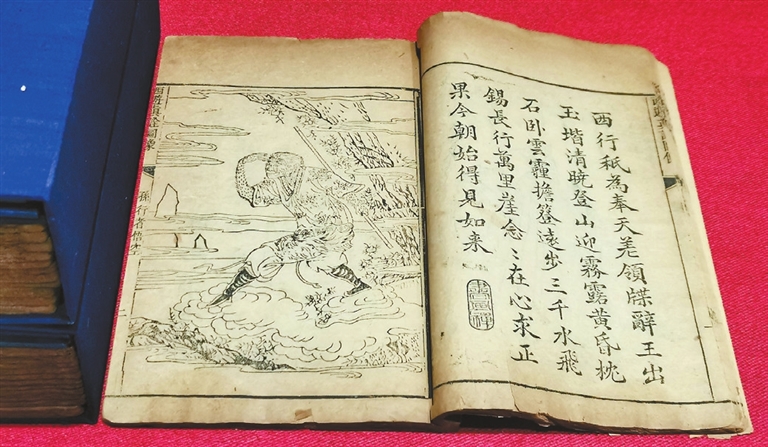 西行祇為奉天差領牒辭王出
玉堦清曉登山迎霧露黃昏枕
石卧雲霾擔簦遠步三千水飛
錫長行萬里崖念〻在心求正
果今朝始得見如来
西遊真詮圖像
孫行者悟空